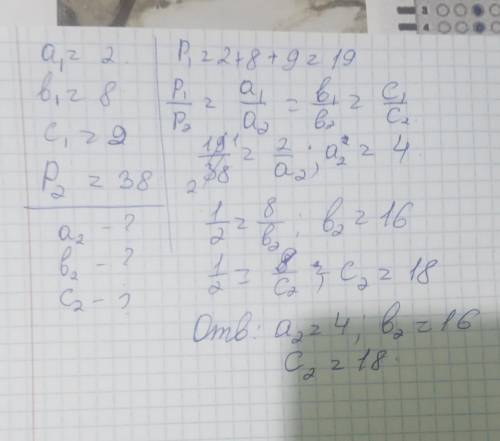 a₁ = 2
в₁ = 8
c₁ = 9
P₂ = 38
a₂ - ?
в₂ - ?
c₂ - ?
P₁ = 2+8+9 = 19
P₁/P₂ = a₁/a₂ = в₁/в₂ = c₁/c₂
19/38 = 2/a₂ ; a₂ = 4
1/2 = 8/в₂ ; в₂ = 16
1/2 = 9/c₂ ; c₂ = 18
Отв: a₂ = 4 ; в₂ = 16
c₂ = 18.